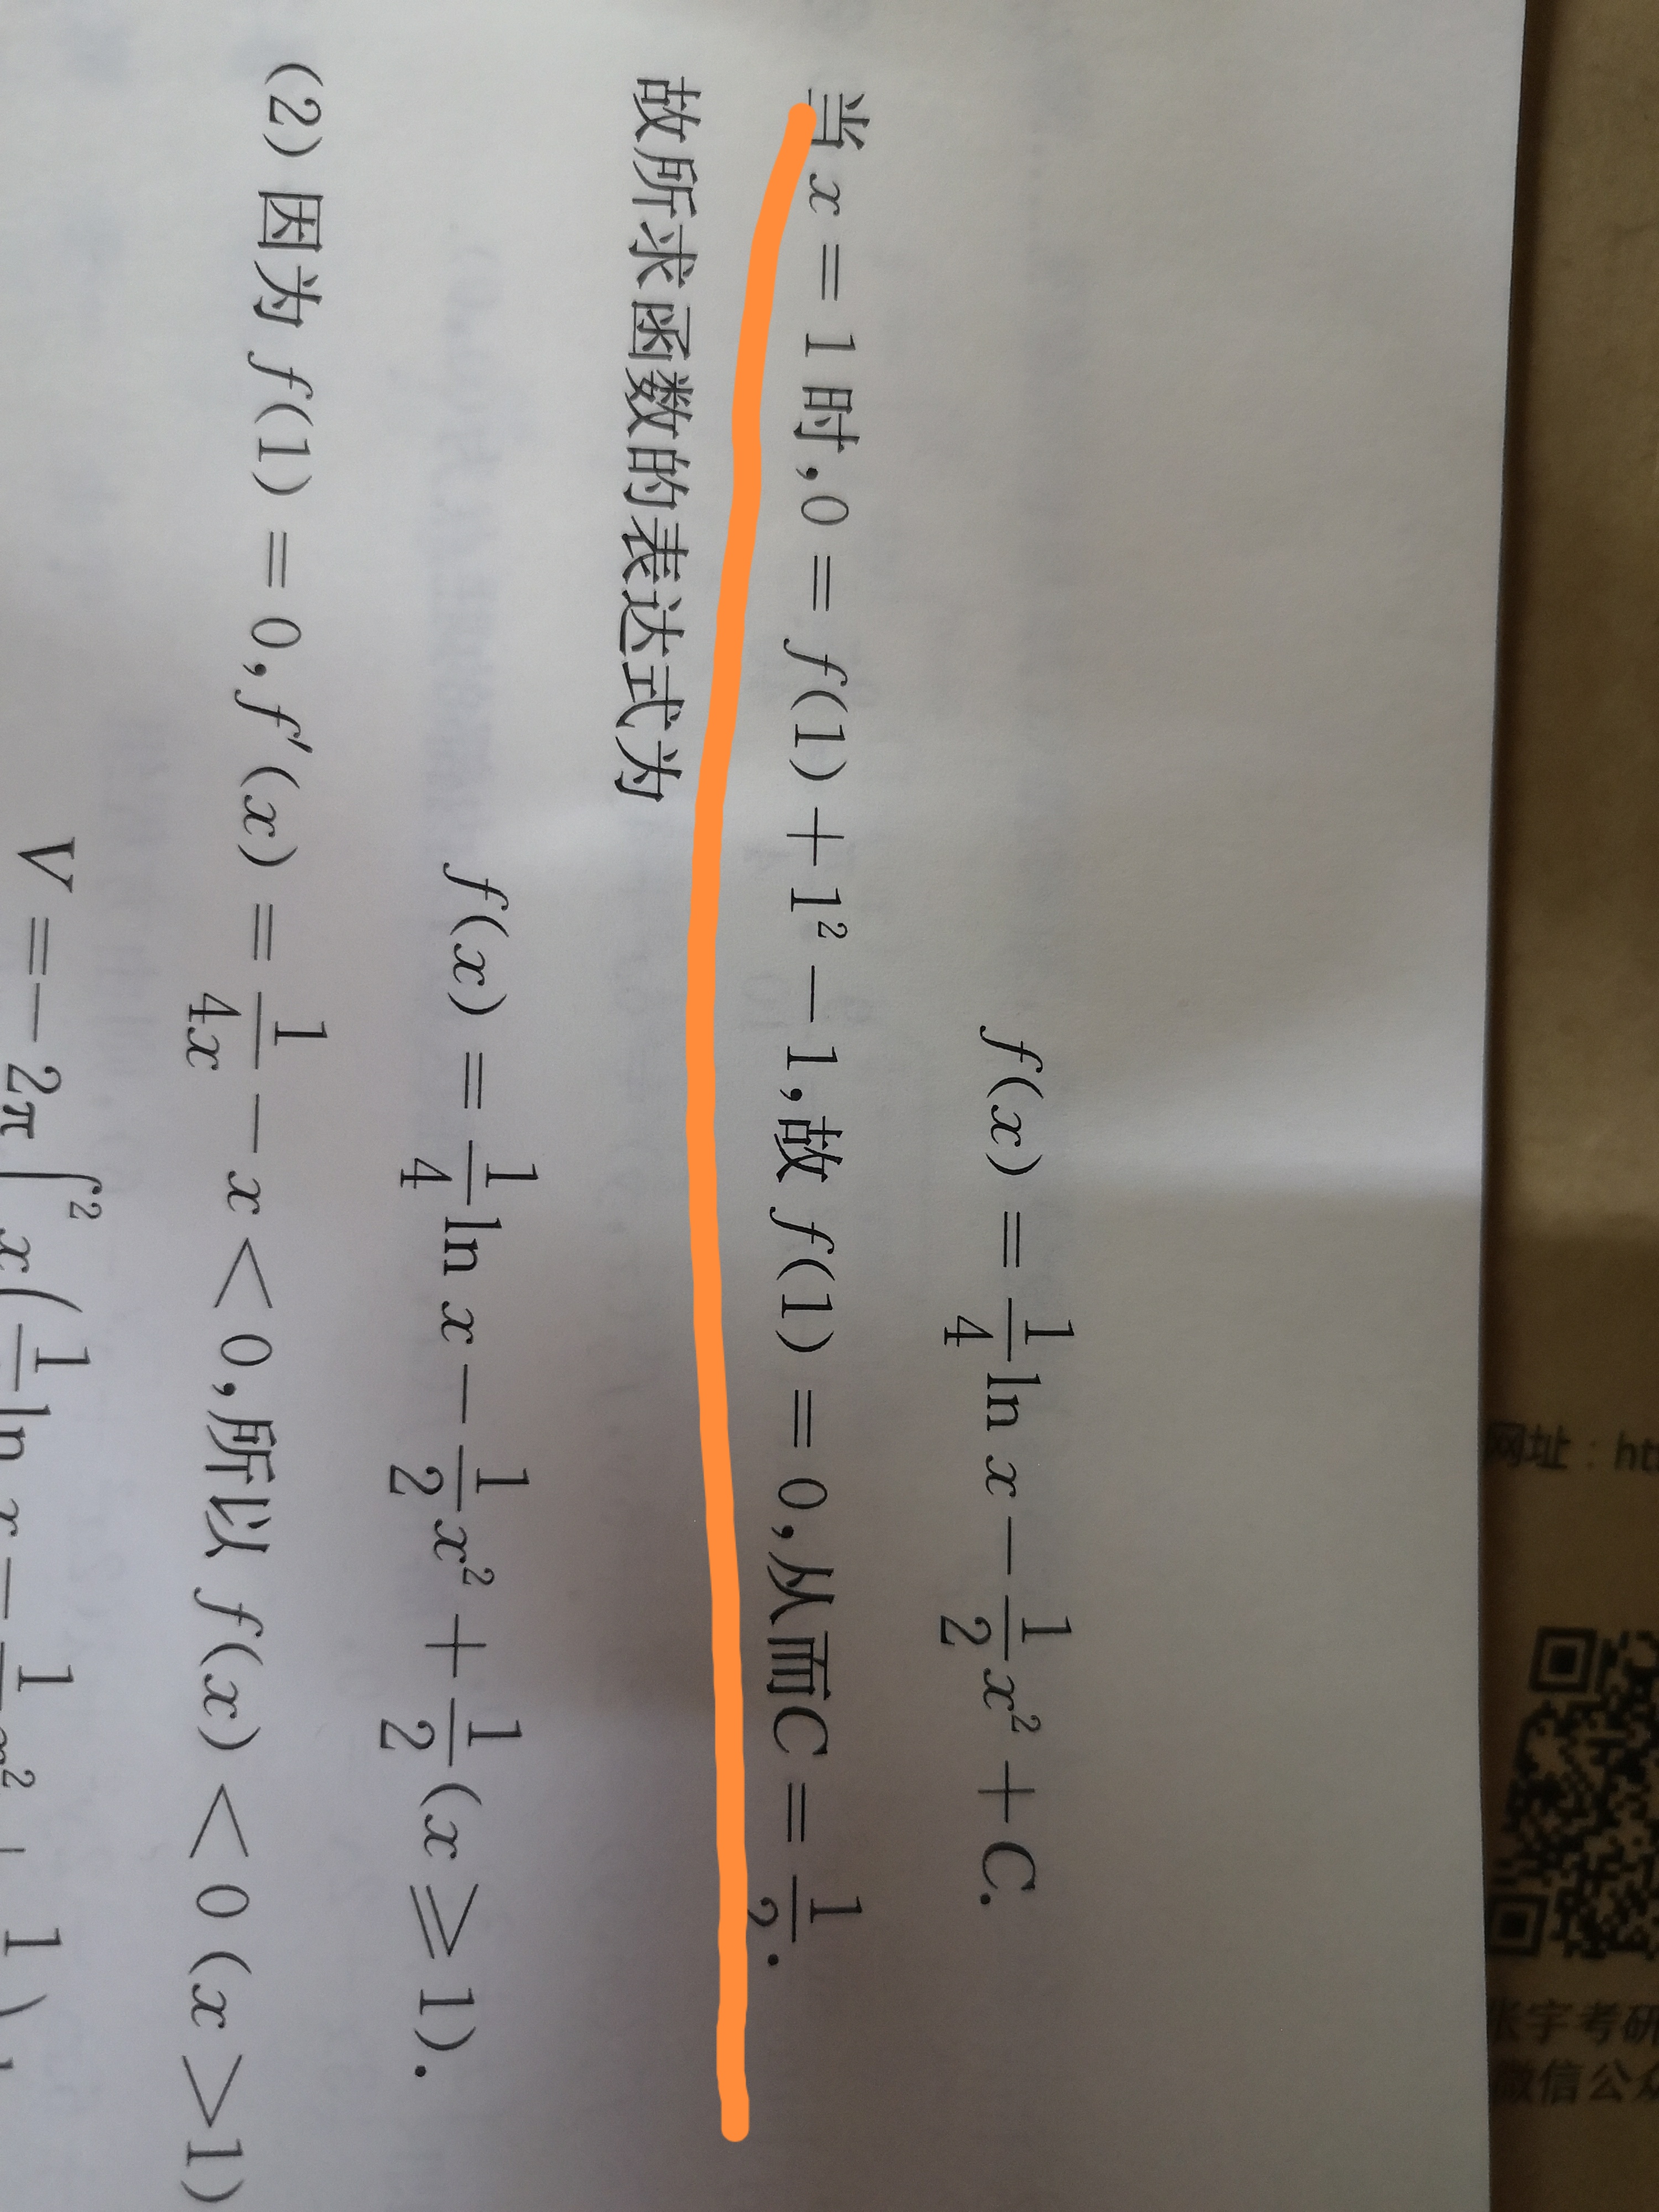 网址：ht
张宇考研
微信公众
f(x) = \frac{1}{4}ln x − \frac{1}{2}x² + C.
当 x = 1 时，0 = f(1) + 1² − 1，故 f(1) = 0，从而C = \frac{1}{2}.
故所求函数的表达式为
f(x) = \frac{1}{4}ln x − \frac{1}{2}x² + \frac{1}{2}(x ⩾ 1).
(2) 因为 f(1) = 0, f′(x) = \frac{1}{4x} − x < 0，所以 f(x) < 0 (x > 1)
V = − 2π ∫² x(\frac{1}{4}ln x − \frac{1}{2}x² + \frac{1}{